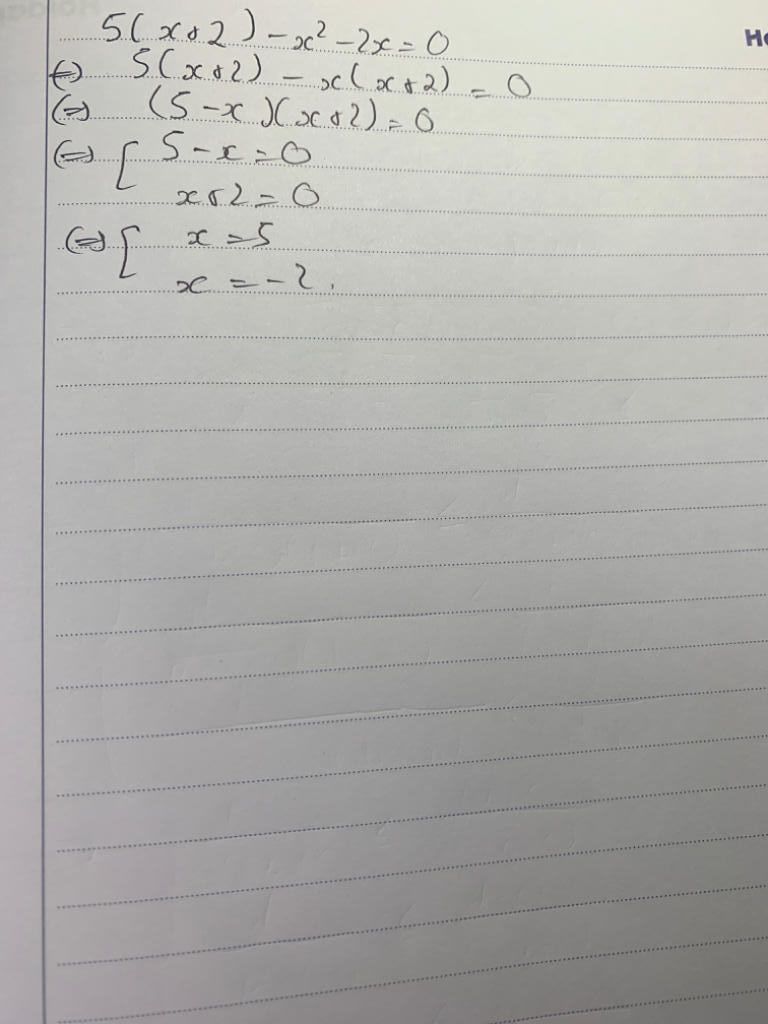 5(x+2)-x²-2x=0
⇔ 5(x+2)-x(x+2)=0
⇔ (5-x)(x+2)=0
⇔ [ 5-x=0
x+2=0
⇔ [ x=5
x=-2.